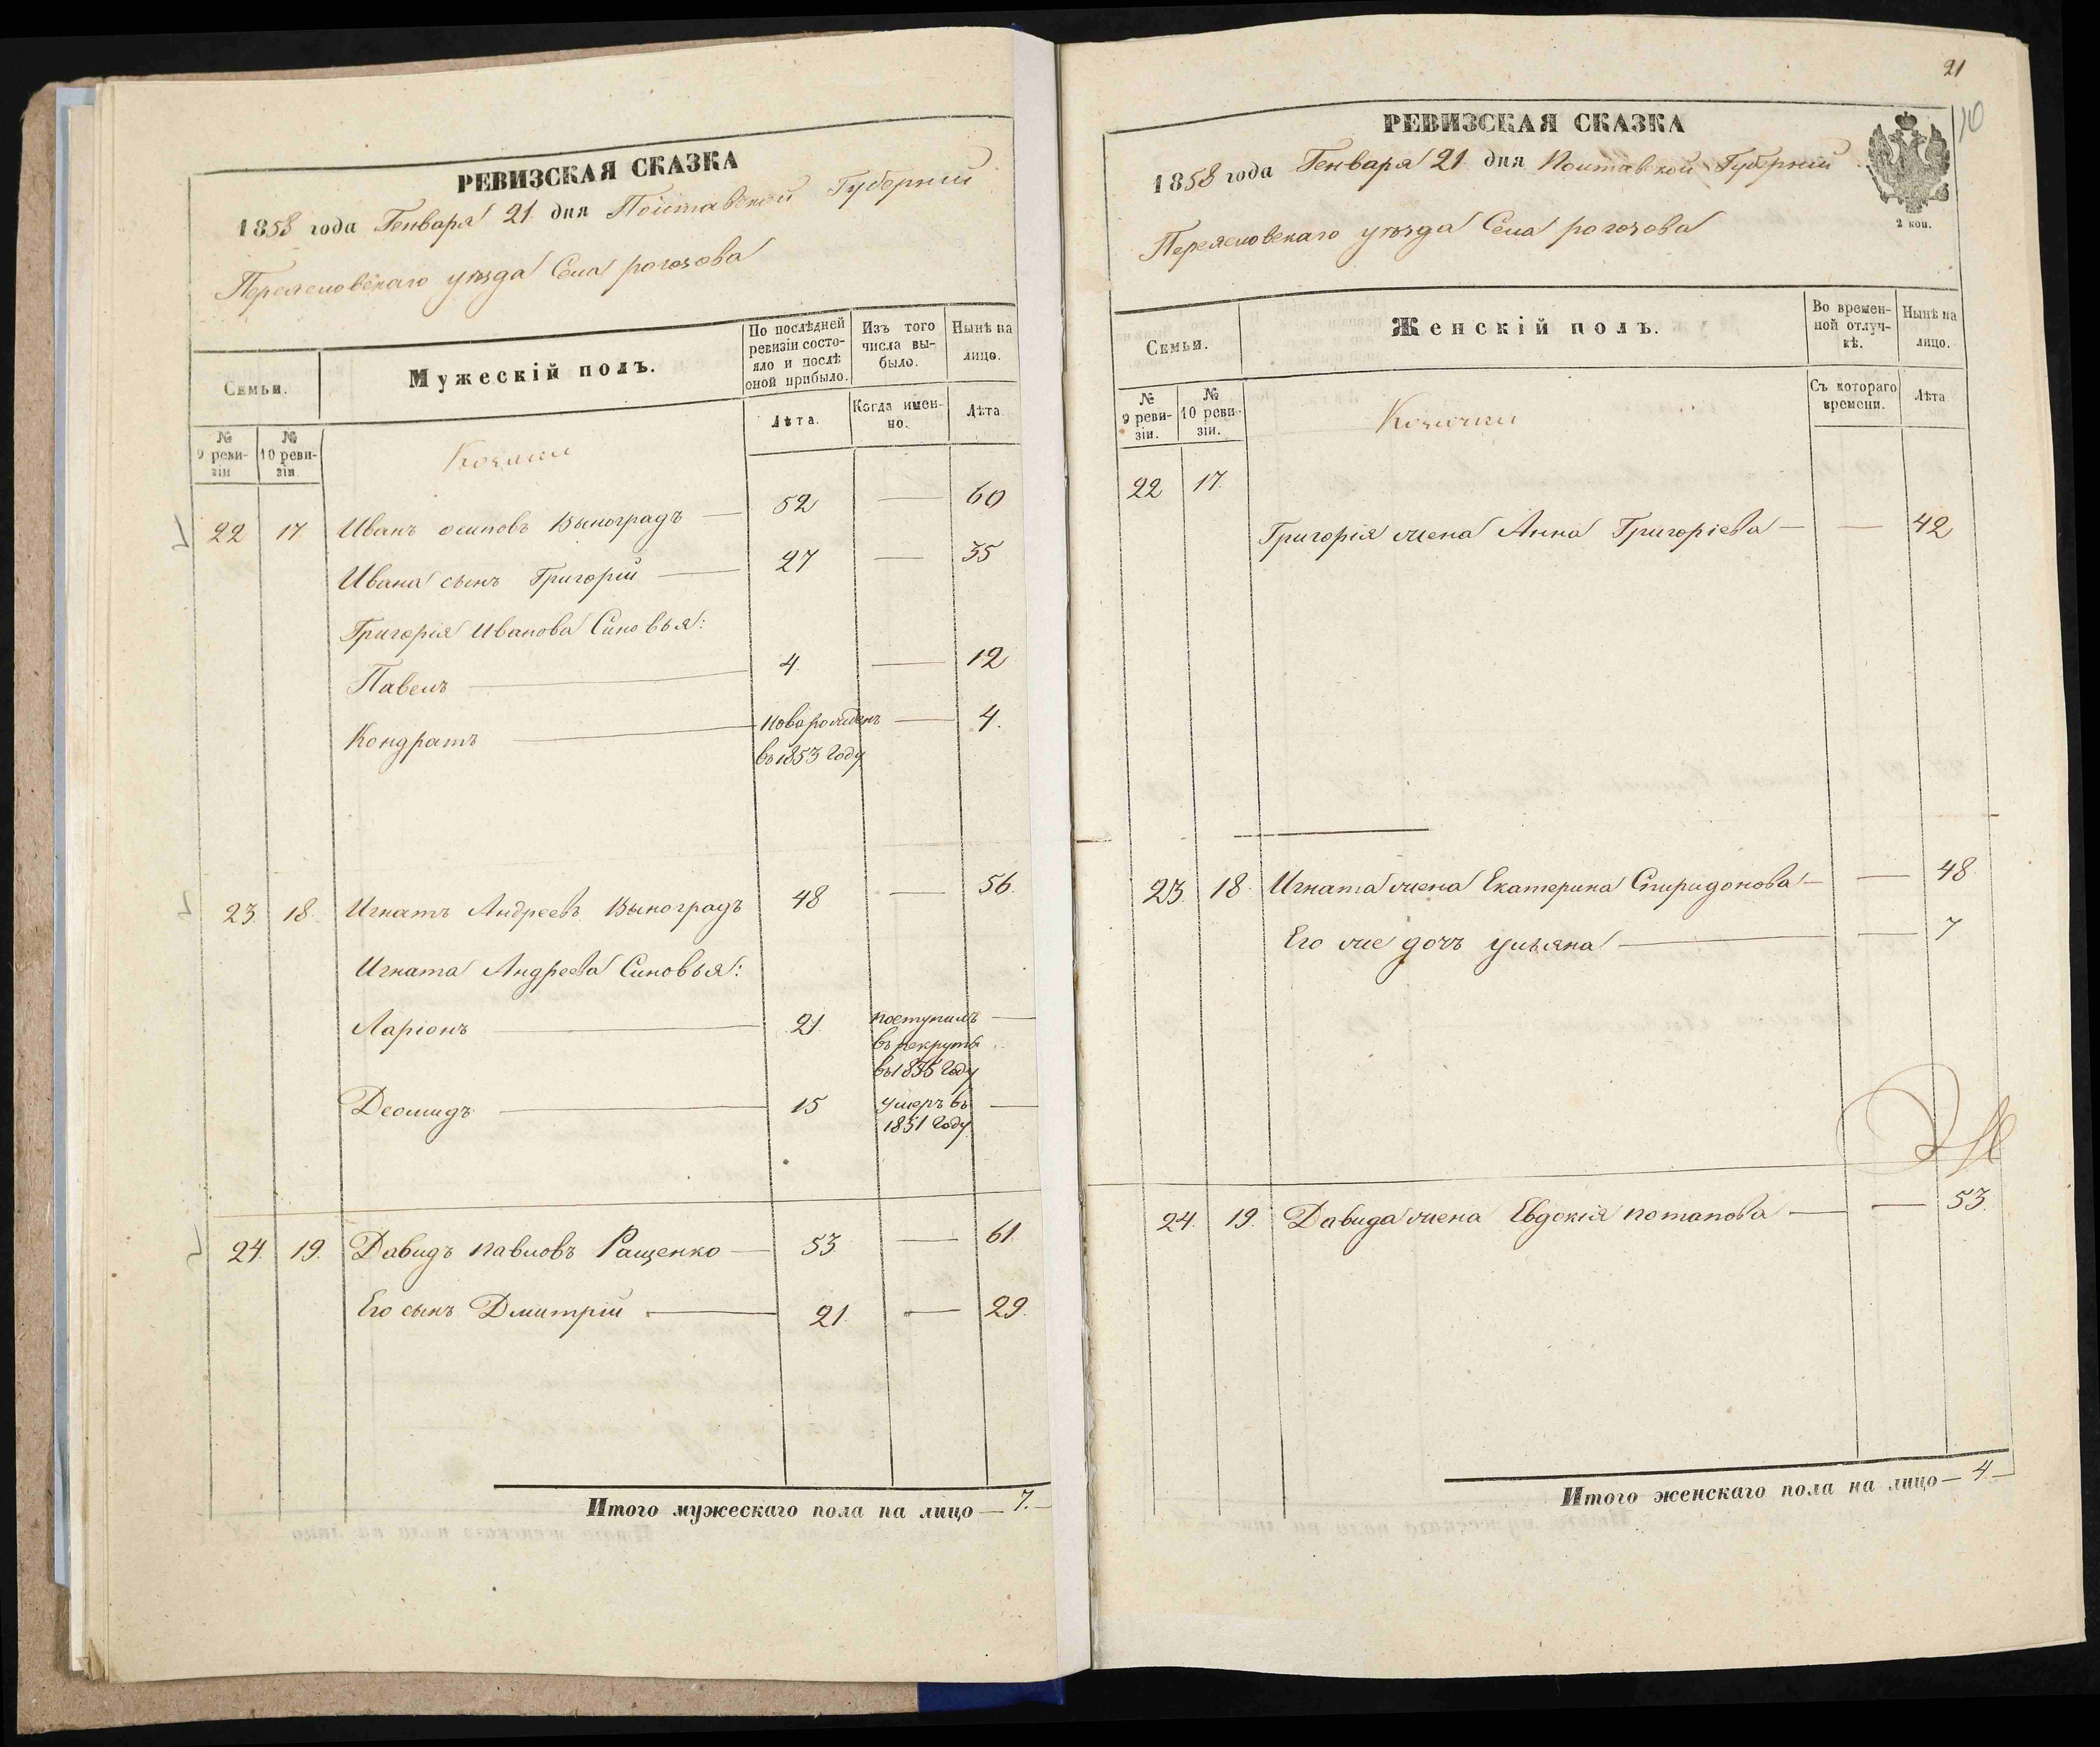 РЕВИЗСКАЯ СКАЗКА
1858 года Генваря 21 дня Полтавской Губерній
Переясловскаго уѣзда Села рогозова
Семьи.
Мужескій полъ.
По послѣдней ревизіи состояло и послѣ оной прибыло.
Изъ того числа выбыло.
Нынѣ на лицо.
№ 9 ревизіи
№ 10 ревизіи
Лѣта.
Когда именно.
Лѣта
Козаки
22 17 Иванъ осиповъ Выноградъ — 52 — 60
Ивана сынъ Григорій — 27 — 35
Григорія Иванова Сыновья:
Павелъ — 4. — 12
Кондратъ — новорожденъ — 4.
въ 1853 году
23 18 Игнатъ Андреевъ Выноградъ 48 — 56.
Игната Андреева Сыновья:
Ларіонъ — 21 поступилъ —
въ рекруты
въ 1855 году
Деомидъ — 15 умеръ въ —
1851 году
24. 19. Давидъ павловъ Ращенко — 53 — 61
Его сынъ Дмитрій — 21. — 29.
Итого мужескаго пола на лицо — 7. —
21
10
РЕВИЗСКАЯ СКАЗКА
1858 года Генваря 21 дня Полтавской Губерній
2 коп.
Переясловскаго уѣзда Села рогозова
Семьи.
Женскій полъ.
Во временной отлучкѣ.
Нынѣ на лицо.
№ 9 ревизіи.
№ 10 ревизіи.
Съ котораго времени.
Лѣта
Козачки
22 17.
Григорія жена Анна Григоріева — — 42
23. 18. Игната жена Екатерина Спиридонова — — 48
Его же дочъ ульяна — — 7
24. 19. Давида жена Евдокія потапова — — 53.
Итого женскаго пола на лицо — 4. —